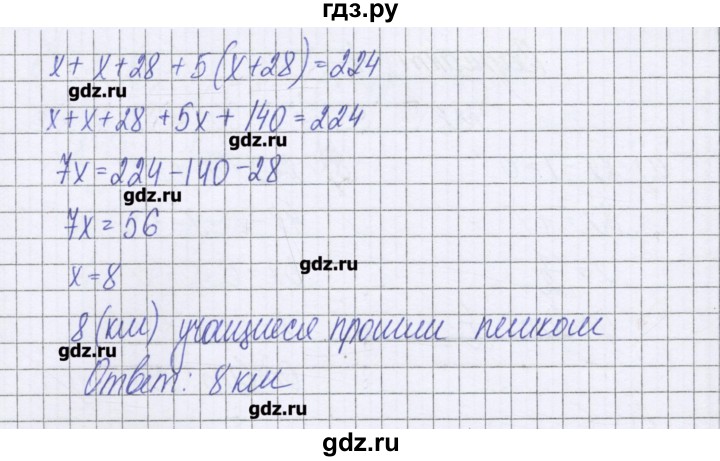 гдз.ру
x + x + 28 + 5(x+28) = 224
gdz.ru
x+x+28+5x+140=224
gdz.ru
7x=224-140-28
gdz.ru
7x=56
gdz.ru
x=8
8 (км) учащиеся прошли пешком
gdz.ru
Ответ: 8 км
gdz.ru
gdz.ru